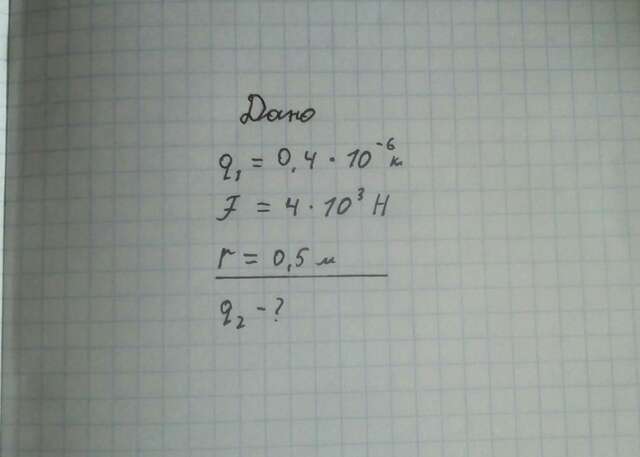 Дано
q₁ = 0,4 · 10⁻⁶ к
F = 4 · 10³ Н
r = 0,5 м
q₂ - ?